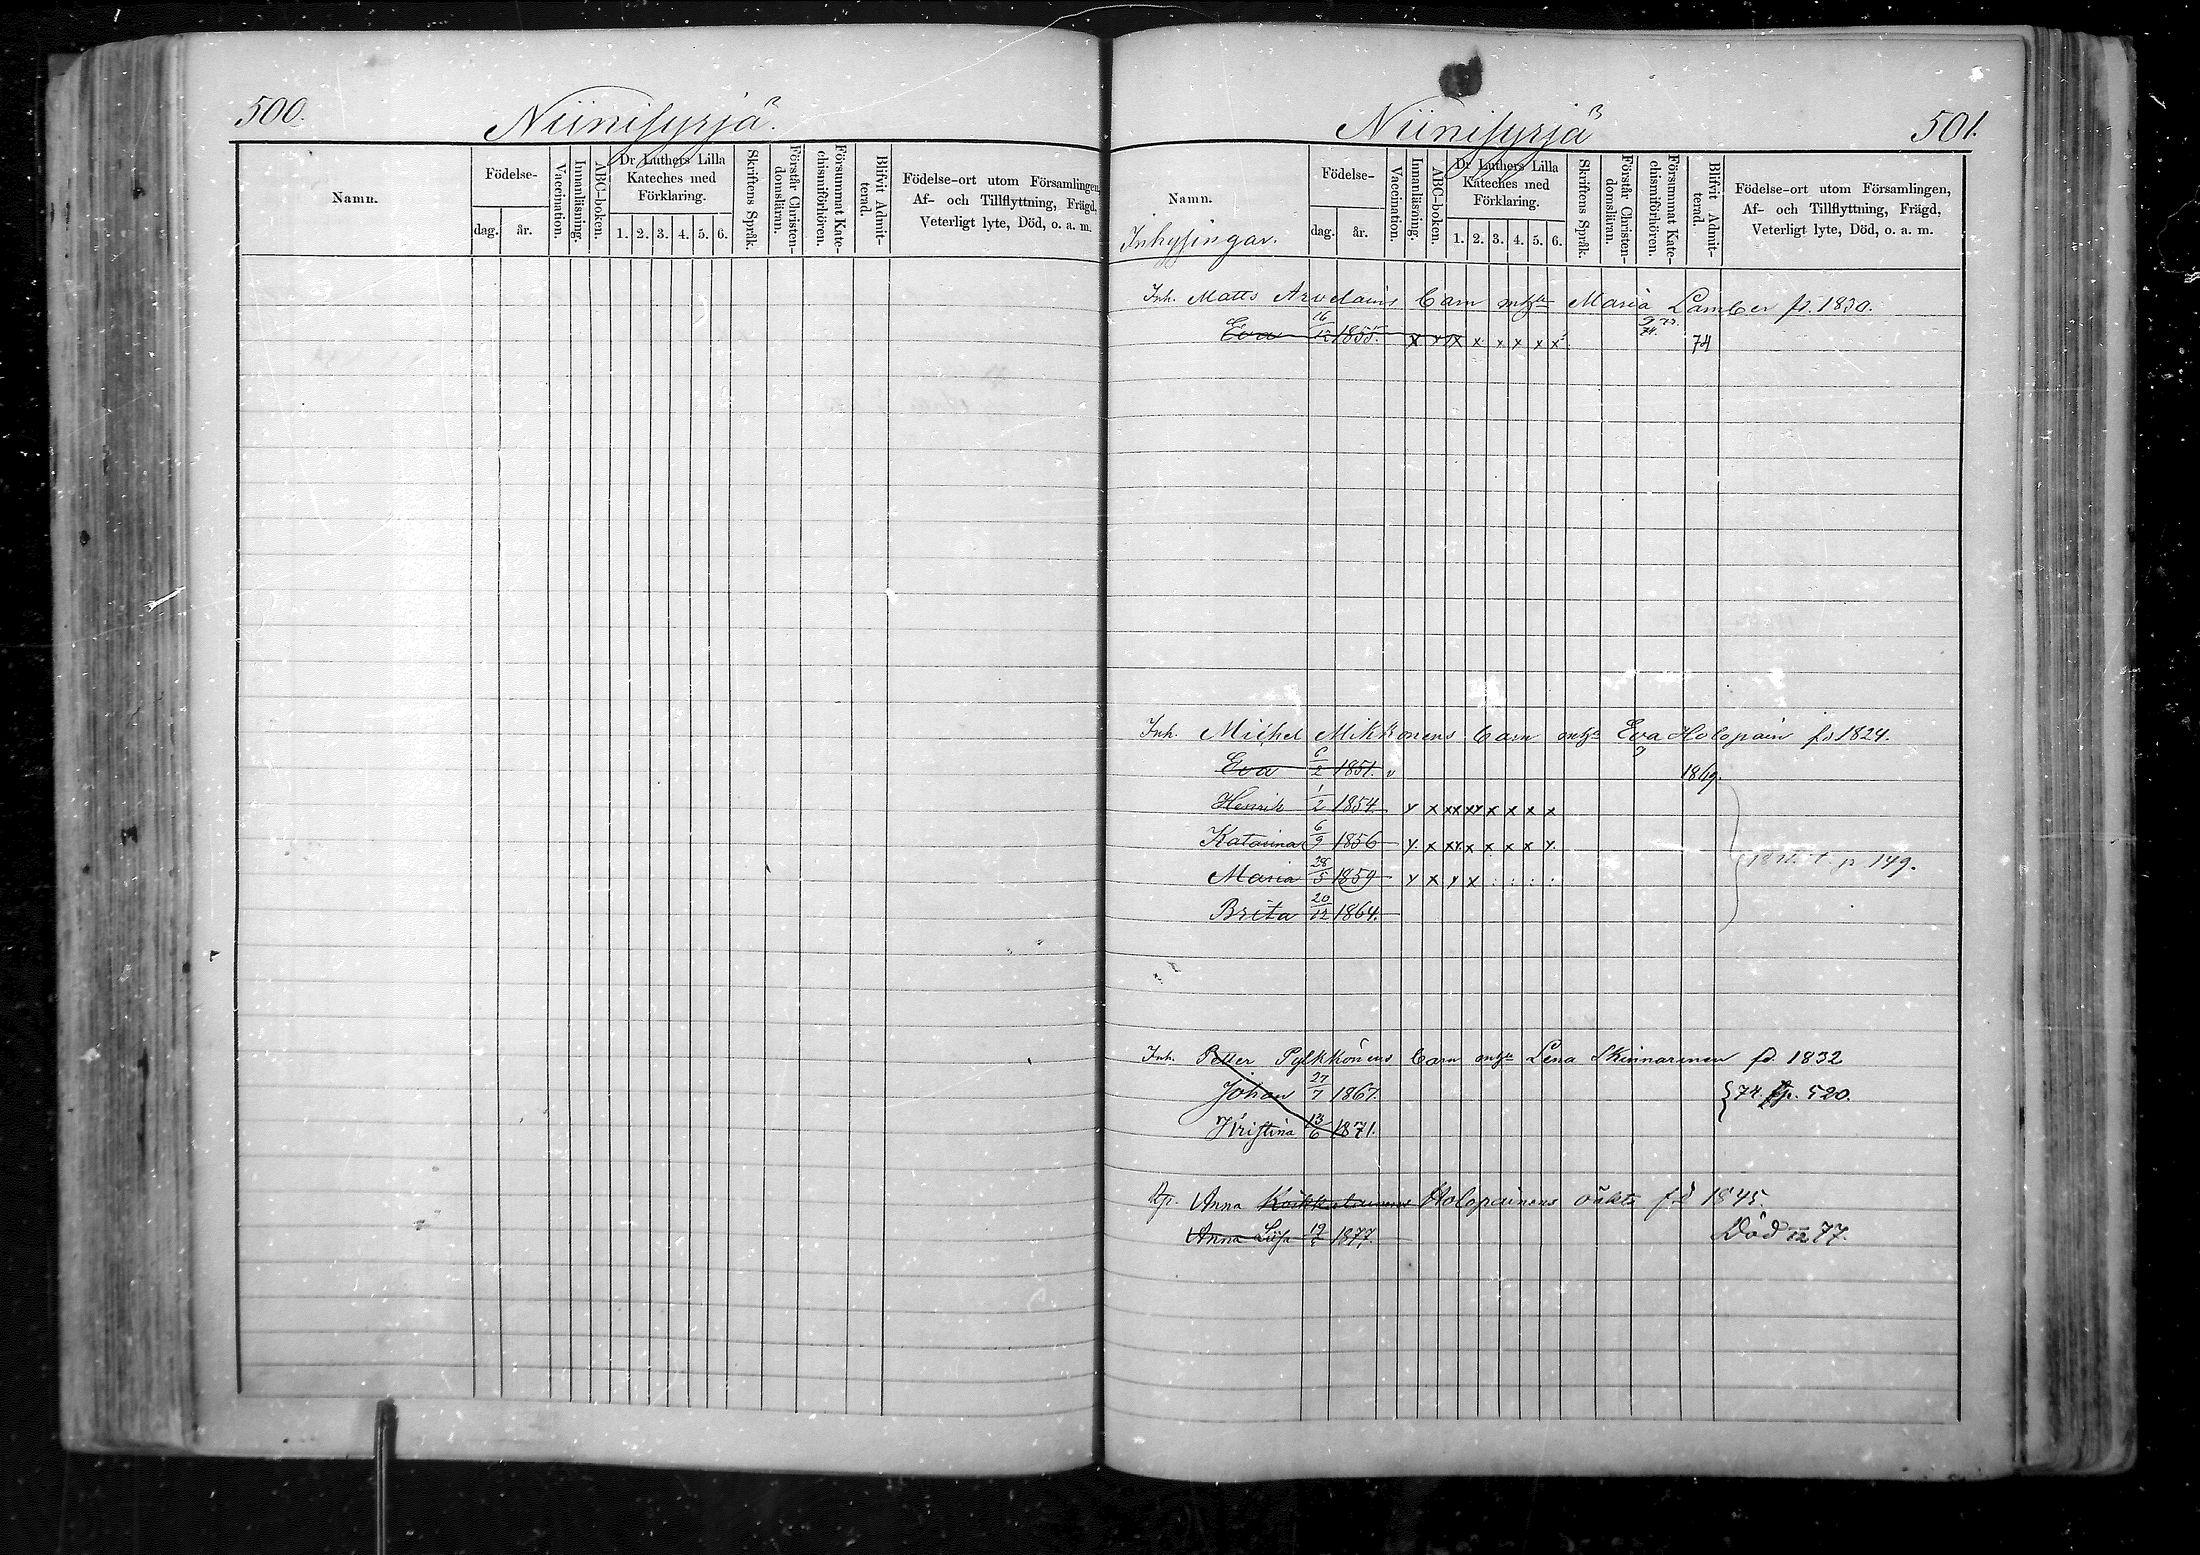 500.
Niinisyrjä
Namn.
Födelse-
dag. år.
Vaccination.
Innanläsning.
ABC-boken.
Dr Luthers Lilla
Kateches med
Förklaring.
1. 2. 3. 4. 5. 6.
Skriftens Språk.
Förstår Christen-
domsläran.
Försummat Kate-
chismiförhören.
Blifvit Admit-
terad.
Födelse-ort utom Församlingen,
Af- och Tillflyttning, Frägd,
Veterligt lyte, Död, o. a. m.
Niinisyrjä
501.
Namn.
Inhysingar.
Födelse-
dag. år.
Vaccination.
Innanläsning.
ABC-boken.
Dr Luthers Lilla
Kateches med
Förklaring.
1. 2. 3. 4. 5. 6.
Skriftens Språk.
Förstår Christen-
domsläran.
Försummat Kate-
chismiförhören.
Blifvit Admit-
terad.
Födelse-ort utom Församlingen,
Af- och Tillflyttning, Frägd,
Veterligt lyte, Död, o. a. m.
Inh. Matts Arvelains barn Maria Lamber 1830.
Eva 16/12 1855. x x x x x x x x 74
Inh. Michel Mikkonens barn Eva Holopain 1824.
Eva 6/2 1851. v 1869.
Henrik 1/2 1854. x x xx xx x x x x
Katarina 6/9 1856 x x xx x x x x x
149.
Maria 28/5 1859 x x x x : : : :
Brita 20/12 1864.
Inh. Petter Pylkkönens barn Lena Skinnarinen fd. 1832
Johan 27/7 1867. 74. p. 520.
Kristina 13/6 1871.
Anna Holopainens oäkta fd 1845.
Anna Lisa 1877. Död 12 77.